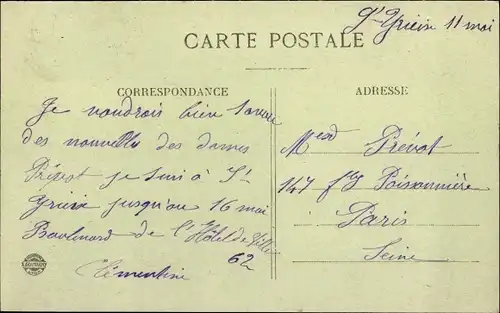 St Yrieix 11 mai
CARTE POSTALE
CORRESPONDANCE
ADRESSE
Je voudrais bien savoir
des nouvelles des dames
Prévot je suis à St
Yrieix jusqu'au 16 mai
Boulevard de l'Hôtel de Ville
62
Clémentine
Mesd Prévot
147 fbg Poissonnière
Paris
Seine